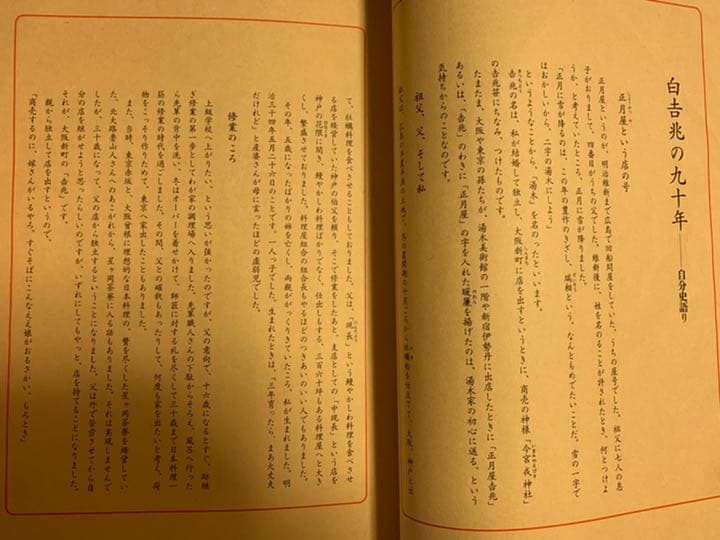 白吉兆の九十年――自分史語り
正月屋という店の号
正月屋というのが、明治維新まで広島で回船問屋をしていた、うちの屋号でした。祖父に七人の息
子がおりまして、四番目がうちの父でした。維新後に、姓を名のることが許されたとき、何とつけよ
うか、と考えていたところ、正月に雪が降りました。
「正月に雪が降るのは、この年の豊作のきざし、瑞相という、なんともめでたいことだ。雪の一字で
はおかしいから、二字の湯木にしよう」
というようなことから、「湯木」を名のったといいます。
吉兆の名は、私が結婚して独立し、大阪新町に店を出すというときに、商売の神様「今宮戎神社」
の吉兆笹にちなみ、つけたものです。
たまたま、大阪や東京の孫たちが、湯木美術館の一階や新宿伊勢丹に出店したときに「正月屋吉兆」
あるいは、「吉兆」のわきに「正月屋」の字を入れた暖簾を揚げたのは、湯木家の初心に返る、という
気持ちからのことなのです。
祖父、父、そして私
て、牡蠣料理を食べさせることもしておりました。父は、「現長」という鰻やかしわ料理を食べさせ
る店を経営していた神戸の伯父を頼り、そこで修業をしたあと、支店としての「中現長」という店を
神戸の花隈に開き、鰻やかしわ料理ばかりでなく、仕出しもする、三百六十坪もある料理屋へと大き
くし、繁盛させておりました。料理屋組合の組合長もやるほどのつきあいのいい人でもありました。
その年、五歳になったばかりの姉を亡くし、両親ががっくりきていたころ、私が生まれました。明
治三十四年五月二十六日のことです。一人っ子でした。生まれたときは、「三年育ったら、まあ大丈夫
だけれど」と産婆さんが母に言ったほどの虚弱児でした。
修業のころ
上級学校へ上がりたい、という思いが強かったのですが、父の意向で、十六歳になるとすぐ、跡継
ぎ修業の第一歩としてわが家の調理場へ入りました。先輩職人さんの下駄からそろえ、風呂へ行った
ら先輩の背中を洗い、冬はオーバーを着せかけて、師匠に対する礼を尽くして三十歳まで日本料理一
筋の修業の時代を過ごしました。その間、父との確執もあったりして、何度も家を出たいと考え、荷
物をこっそり作らためて、東京へ家出したこともありました。
また、当時、東京赤坂と、大阪曽根に理想的な日本料理の、贅を尽くした星ヶ岡茶寮を経営してい
た、北大路魯山人さんへのあこがれから、星ヶ岡茶寮に入る話もありました。それは実現しませんで
したが、三十歳になって、父の店から独立するということになりました。父は外で苦労させてから自
分の店を継がせようと思ったらしいのですが、いずれにしてもやっと、店を持てることになりました。
それが、大阪新町の「吉兆」です。
親から独立して店を出すというので、
「商売するのに、嫁さんがいるやろ。すぐそばにこんなええ娘がおるさかい、もろとき」